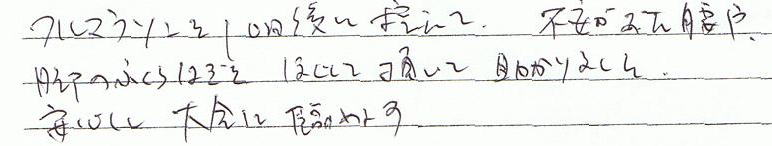 フルマラソンを10日後に控えて、不安があった腰や
脚のふくらはぎを ほぐして頂いて 助かりました。
安心して 大会に臨めます